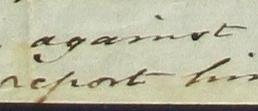 against
report him